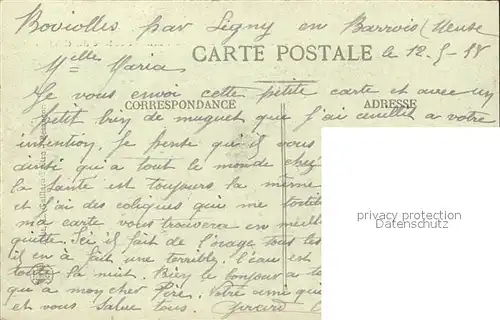 Boviolles par Ligny en Barrois (Meuse
CARTE POSTALE le 12-5-18
Melle Maria
Je vous envoi cette petite carte et avec un
CORRESPONDANCE ADRESSE
petit brin de muguet que j'ai cueillit a votre
intention. Je pense qu'il vous
ainsi qu'a tout le monde chez
la Santé est toujours la même
et j'ai des coliques que me
privacy protection
ma carte vous trouvera en meill
Datenschutz
quitte. Ici il fait de l'orage tous les
il en à fait une terrible. l'eau est
toute la nuit. Bien le bonjour a to
qu a mon cher Père. Votre ami qui
et vous salue tous. Gérard